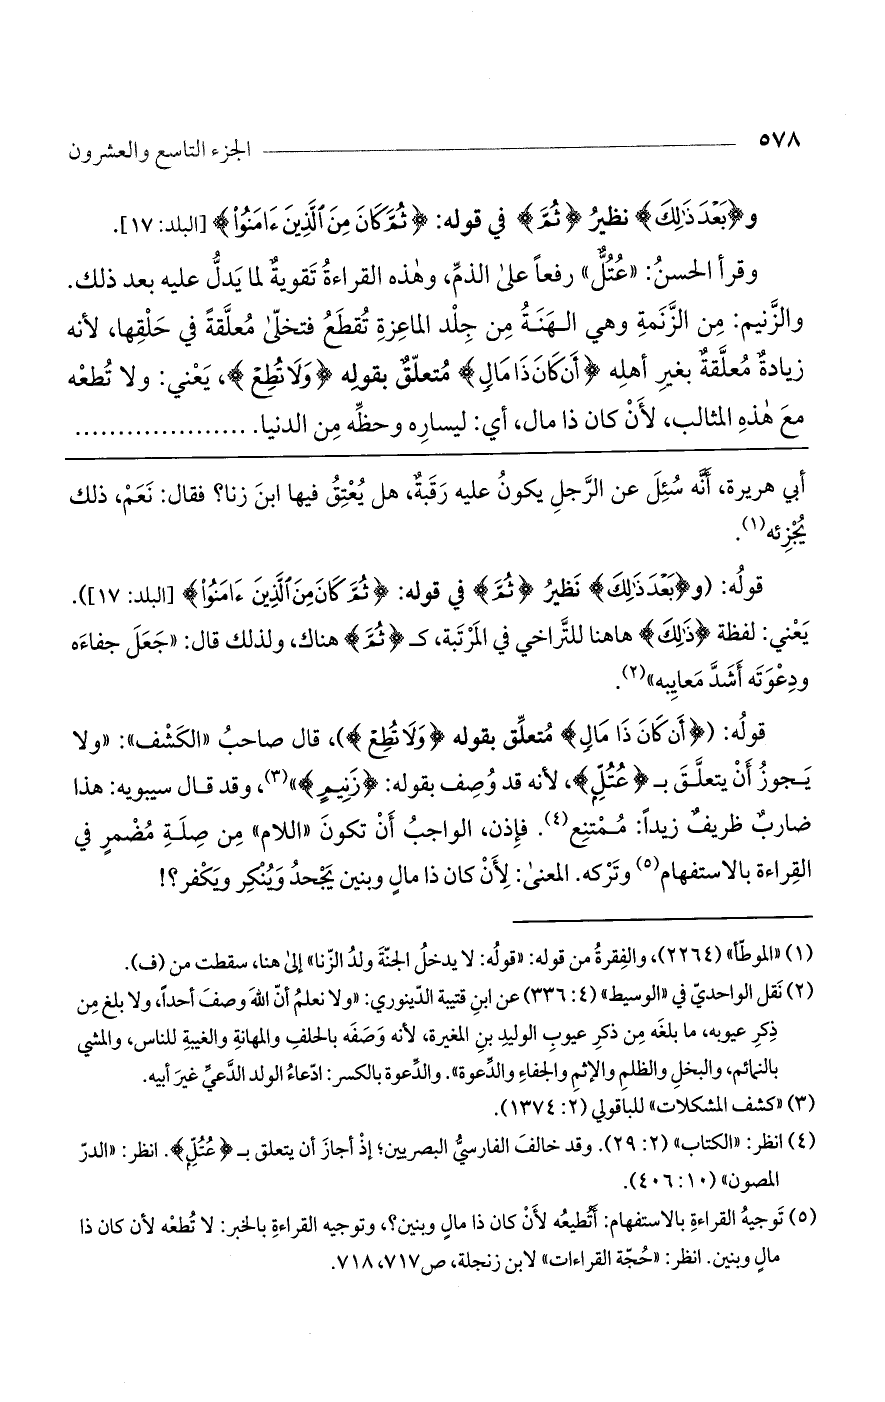 ٥٧٨ ــــــــــــــــ الجزء التاسع والعشرون
و﴿بَعْدَ ذَٰلِكَ﴾ نظيرُ ﴿ثُمَّ﴾ في قوله: ﴿ثُمَّ كَانَ مِنَ ٱلَّذِينَ ءَامَنُوا۟﴾ [البلد: ١٧].
وقرأ الحسنُ: «عُتُلٌّ» رفعاً علىٰ الذمِّ، وهٰذه القراءةُ تَقويةٌ لما يَدلُّ عليه بعد ذلك.
والزَّنيم: مِن الزَّنَمةِ وهي الـهَنَةُ مِن جِلْد الماعِزةِ تُقطَعُ فتخلّىٰ مُعلَّقةً في حَلْقِها، لأنه
زيادةٌ مُعلَّقةٌ بغيرِ أهلِه ﴿أَن كَانَ ذَا مَالٍ﴾ مُتعلّقٌ بقولِه ﴿وَلَا تُطِعْ﴾، يَعْني: ولا تُطعْه
معَ هٰذهِ المثالب، لأَنْ كان ذا مال، أي: ليسارِه وحظِّه مِن الدنيا. ....................
أبي هريرة، أَنَّه سُئِلَ عن الرَّجلِ يكونُ عليه رَقَبةٌ، هل يُعْتِقُ فيها ابنَ زنا؟ فقال: نَعَمْ، ذلك
يُجْزِئه(١).
قولُه: (و﴿بَعْدَ ذَٰلِكَ﴾ نَظيرُ ﴿ثُمَّ﴾ في قوله: ﴿ثُمَّ كَانَ مِنَ ٱلَّذِينَ ءَامَنُوا۟﴾ [البلد: ١٧]).
يَعْني: لفظة ﴿ذَٰلِكَ﴾ هاهنا للتَّراخي في المَرْتَبة، كـ ﴿ثُمَّ﴾ هناك، ولذلك قال: «جَعَلَ جفاءَه
ودِعْوَتَه أَشَدَّ مَعايِبه»(٢).
قولُه: (﴿أَن كَانَ ذَا مَالٍ﴾ مُتعلِّق بقوله ﴿وَلَا تُطِعْ﴾)، قال صاحبُ «الكَشْف»: «ولا
يَـجوزُ أَنْ يتعلَّـقَ بـ ﴿عُتُلٍّ﴾، لأنه قد وُصِف بقوله: ﴿زَنِيمٍ﴾»(٣)، وقد قـال سيبويه: هذا
ضاربٌ ظريفٌ زيداً: مُـمْتنِع(٤). فإذن، الواجبُ أَنْ تكونَ «اللام» مِن صِلَـةِ مُضْمرٍ في
القِراءة بالاستفهام(٥) وتَرْكه. المعنىٰ: لِأَنْ كان ذا مالٍ وبنين يَجْحدُ وَيُنْكِر ويَكْفر؟!
(١) «الموطّأ» (٢٢٦٤)، والفِقرةُ من قوله: «قولُه: لا يدخلُ الجنّةَ ولدُ الزّنا» إلىٰ هنا، سقطت من (ف).
(٢) نَقل الواحديّ في «الوسيط» (٤: ٣٣٦) عن ابنِ قتيبة الدِّينوري: «ولا نعلمُ أنّ اللهَ وصفَ أحداً، ولا بلغ مِن
ذِكرِ عيوبه، ما بلغَه مِن ذكرِ عيوبِ الوليدِ بنِ المغيرة، لأنه وَصَفَه بالحلفِ والمهانةِ والغيبةِ للناس، والمشي
بالنمائم، والبخلِ والظلمِ والإثمِ والجفاءِ والدِّعوة». والدِّعوة بالكسر: ادّعاءُ الولد الدَّعيِّ غيرَ أبيه.
(٣) «كشف المشكلات» للباقولي (٢: ١٣٧٤).
(٤) انظر: «الكتاب» (٢: ٢٩). وقد خالفَ الفارسيُّ البصريين؛ إذْ أجازَ أن يتعلق بـ ﴿عُتُلٍّ﴾. انظر: «الدرّ
المصون» (١٠: ٤٠٦).
(٥) تَوجيهُ القراءةِ بالاستفهام: أَتُطيعُه لأَنْ كان ذا مالٍ وبنين؟، وتوجيه القراءةِ بالخبر: لا تُطعْه لأن كان ذا
مالٍ وبنين. انظر: «حُجّة القراءات» لابن زنجلة، ص٧١٧، ٧١٨.